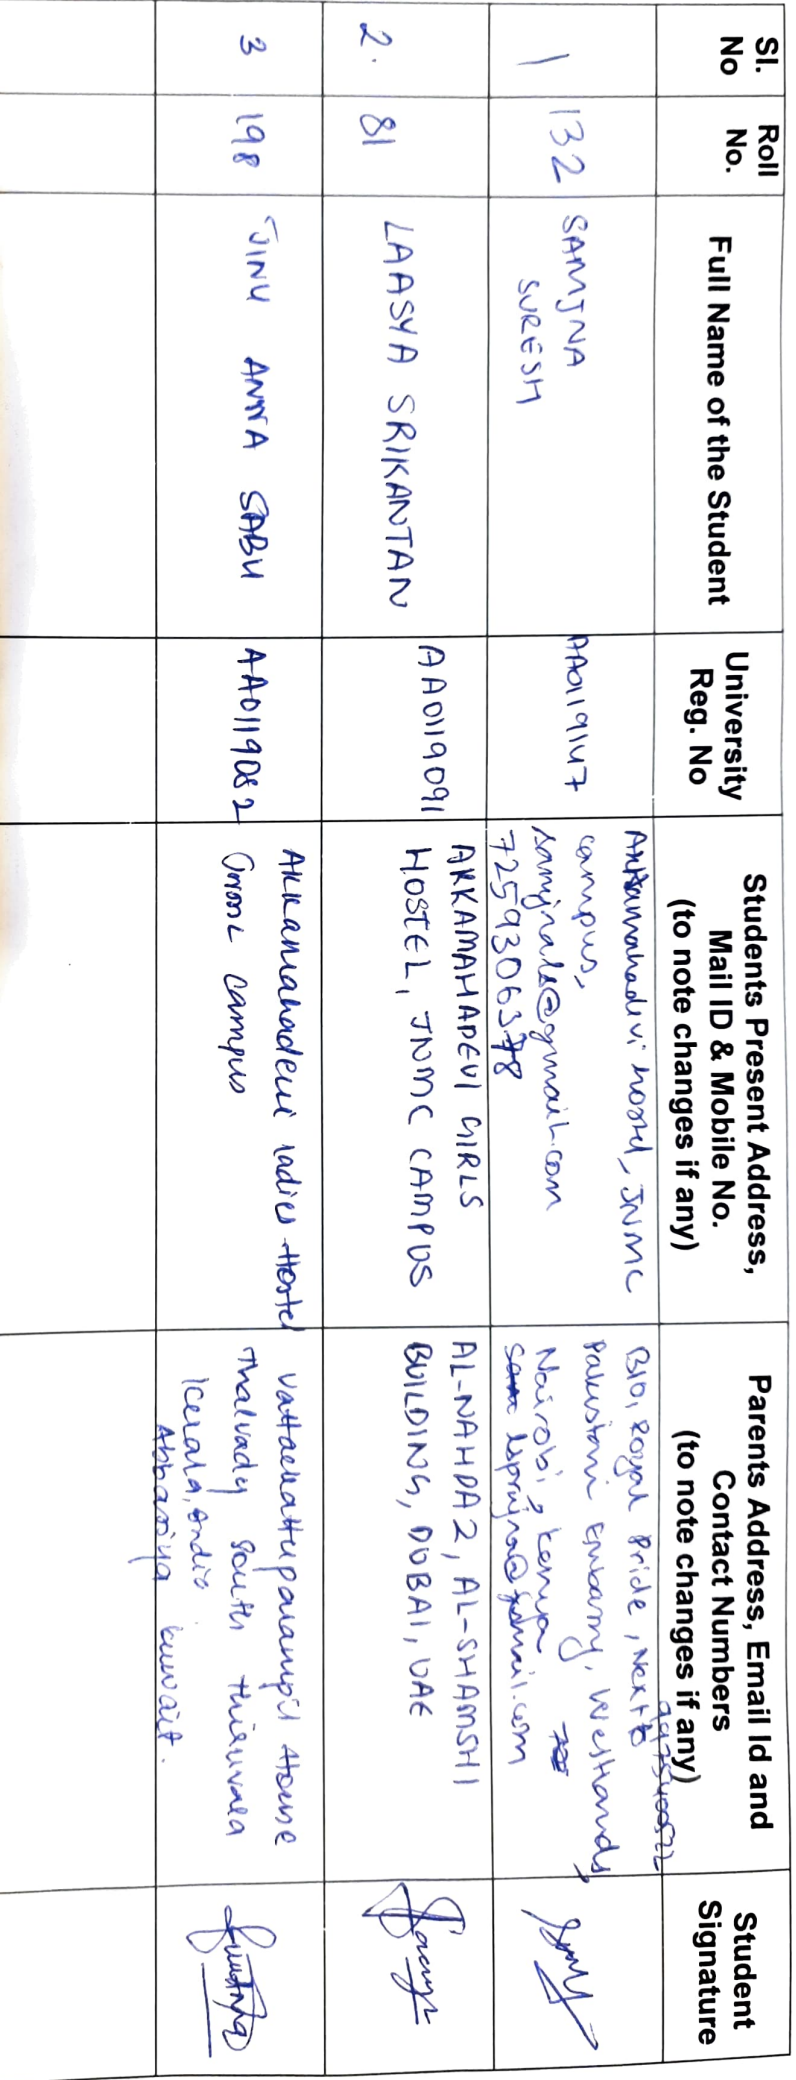 Sl.
No
Roll
No.
Full Name of the Student
University
Reg. No
Students Present Address,
Mail ID & Mobile No.
(to note changes if any)
Parents Address, Email Id and
Contact Numbers
(to note changes if any)
Student
Signature
1
132
SAMJNA
SURESH
AA0119147
Akkamahadevi hostel, JNMC
campus,
samjnals@gmail.com
B10, Royal Pride, Next to
Pakistani Embassy, Westlands,
Nairobi, Kenya
2.
81
LAASYA SRIKANTAN
AA0119091
AKKAMAHADEVI GIRLS
HOSTEL, JNMC CAMPUS
AL-NAHDA 2, AL-SHAMSHI
BUILDING, DUBAI, UAE
3
198
JINU ANNA SABU
AA0119082
Akkamahadevi ladies Hostel
campus
Vattackattuparampil House
Thalvady South Thiruvalla
Kerala, India.
Abbasiya Kuwait.